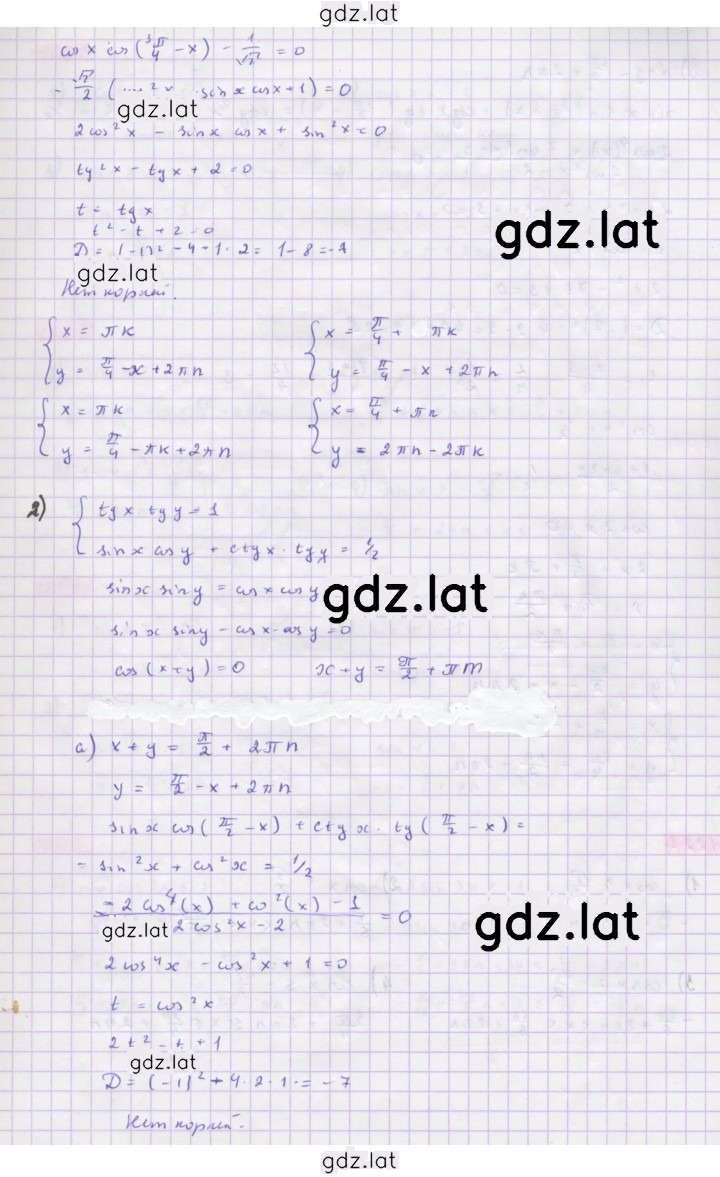 gdz.lat
cos x cos(3π/4 - x) - 1/√2 = 0
- √2/2 ( sin x cos x + 1) = 0
gdz.lat
2cos²x - sin x cos x + sin²x = 0
tg²x - tg x + 2 = 0
t = tg x
t² - t + 2 = 0
gdz.lat
D = (-1)² - 4 · 1 · 2 = 1 - 8 = -7
gdz.lat
Нет корней.
{ x = πk
y = π/4 - x + 2πn
{ x = π/4 + πk
y = π/4 - x + 2πn
{ x = πk
y = π/4 - πk + 2πn
{ x = π/4 + πn
y = 2πn - 2πk
2) { tg x tg y = 1
sin x cos y + ctg x · tg y = 1/2
sin x sin y = cos x cos y
gdz.lat
sin x sin y - cos x · cos y = 0
cos(x+y) = 0 x + y = π/2 + πm
a) x + y = π/2 + 2πn
y = π/2 - x + 2πn
sin x cos(π/2 - x) + ctg x · tg(π/2 - x) =
= sin²x + cos²x = 1/2
-2cos⁴(x) + cos²(x) - 1 / 2cos²x - 2 = 0
gdz.lat
gdz.lat
2cos⁴x - cos²x + 1 = 0
t = cos²x
2t² - t + 1
gdz.lat
D = (-1)² - 4 · 2 · 1 · = -7
Нет корней.
gdz.lat